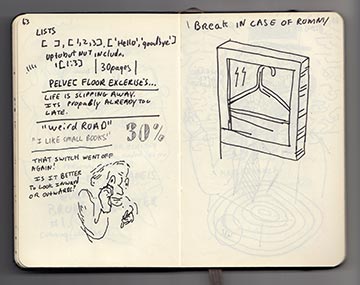 63
LISTS
[ ], [1,2,3], ['Hello', 'goodbye']
up to but NOT include.
'[1:3]
|30 pages|
PELVIC FLOOR EXCERISE'S...
LIFE IS SLIPPING AWAY.
ITS PROPABLY ALREADY TOO
LATE.
"Weird ROAD"
"I LIKE SMALL BOOKS"
30%
THAT SWITCH WENT OFF
AGAIN!
IS IT BETTER
TO LOOK INWARD
OR OUTWARD?
Break IN CASE OF ROMNY